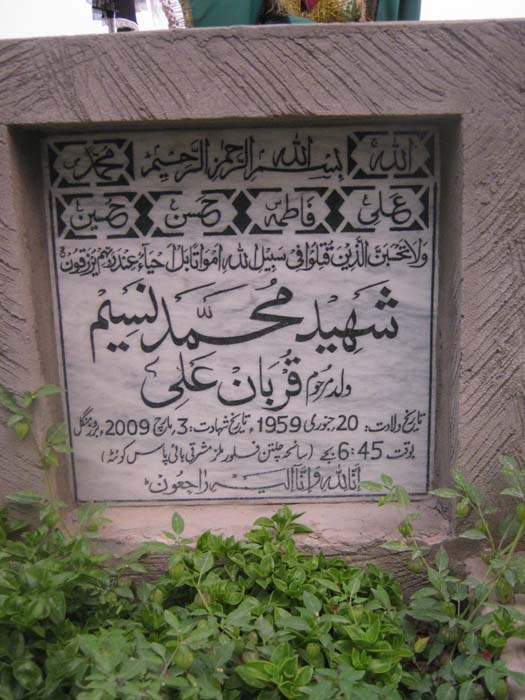 الله بسم الله الرحمن الرحيم محمد
علی فاطمہ حسن حسین
ولا تحسبن الذين قتلوا فی سبيل الله امواتا بل احیاء عند ربهم يرزقون
شہید محمد نسیم
ولد مرحوم قربان علی
تاریخ ولادت: 20 جنوری 1959ء تاریخ شہادت: 3 مارچ 2009ء بروز منگل
بوقت 6:45 بجے (سانحہ چلتن فلور ملز مشرقی بائی پاس کوئٹہ)
انا لله وانا اليه راجعون